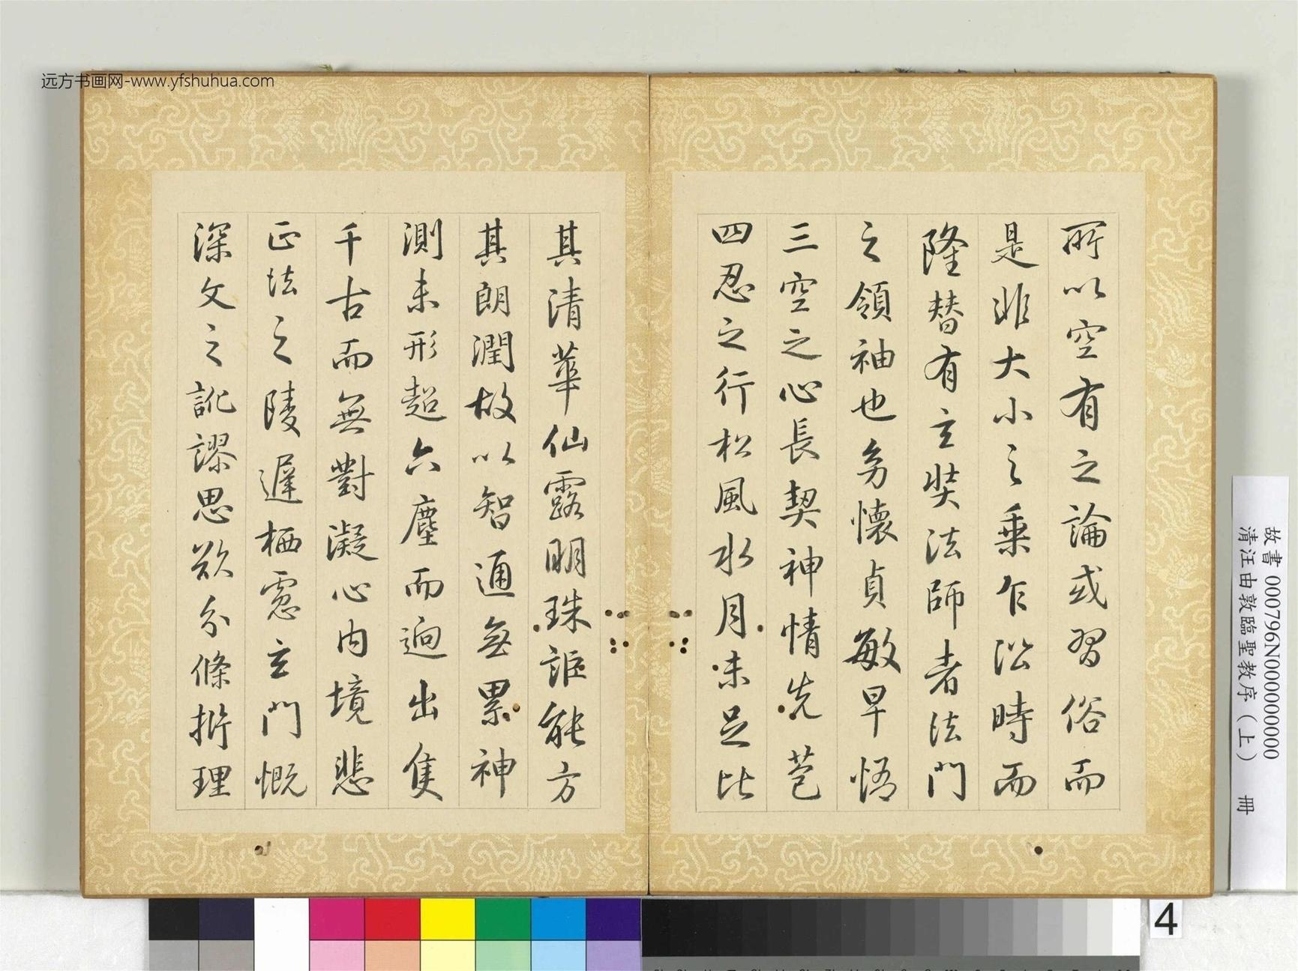 远方书画网-www.yfshuhua.com
所以空有之論或習俗而
是非大小之乘乍㳂時而
隆替有玄奘法師者法門
之領袖也幼懷貞敏早悟
三空之心長契神情先苞
四忍之行松風水月未足比
其清華仙露明珠詎能方
其朗潤故以智通無累神
測未形超六塵而迥出隻
千古而無對凝心內境悲
正法之陵遲栖慮玄門慨
深文之訛謬思欲分條析理
故書 000796N000000000
清汪由敦臨聖教序（上） 冊
4